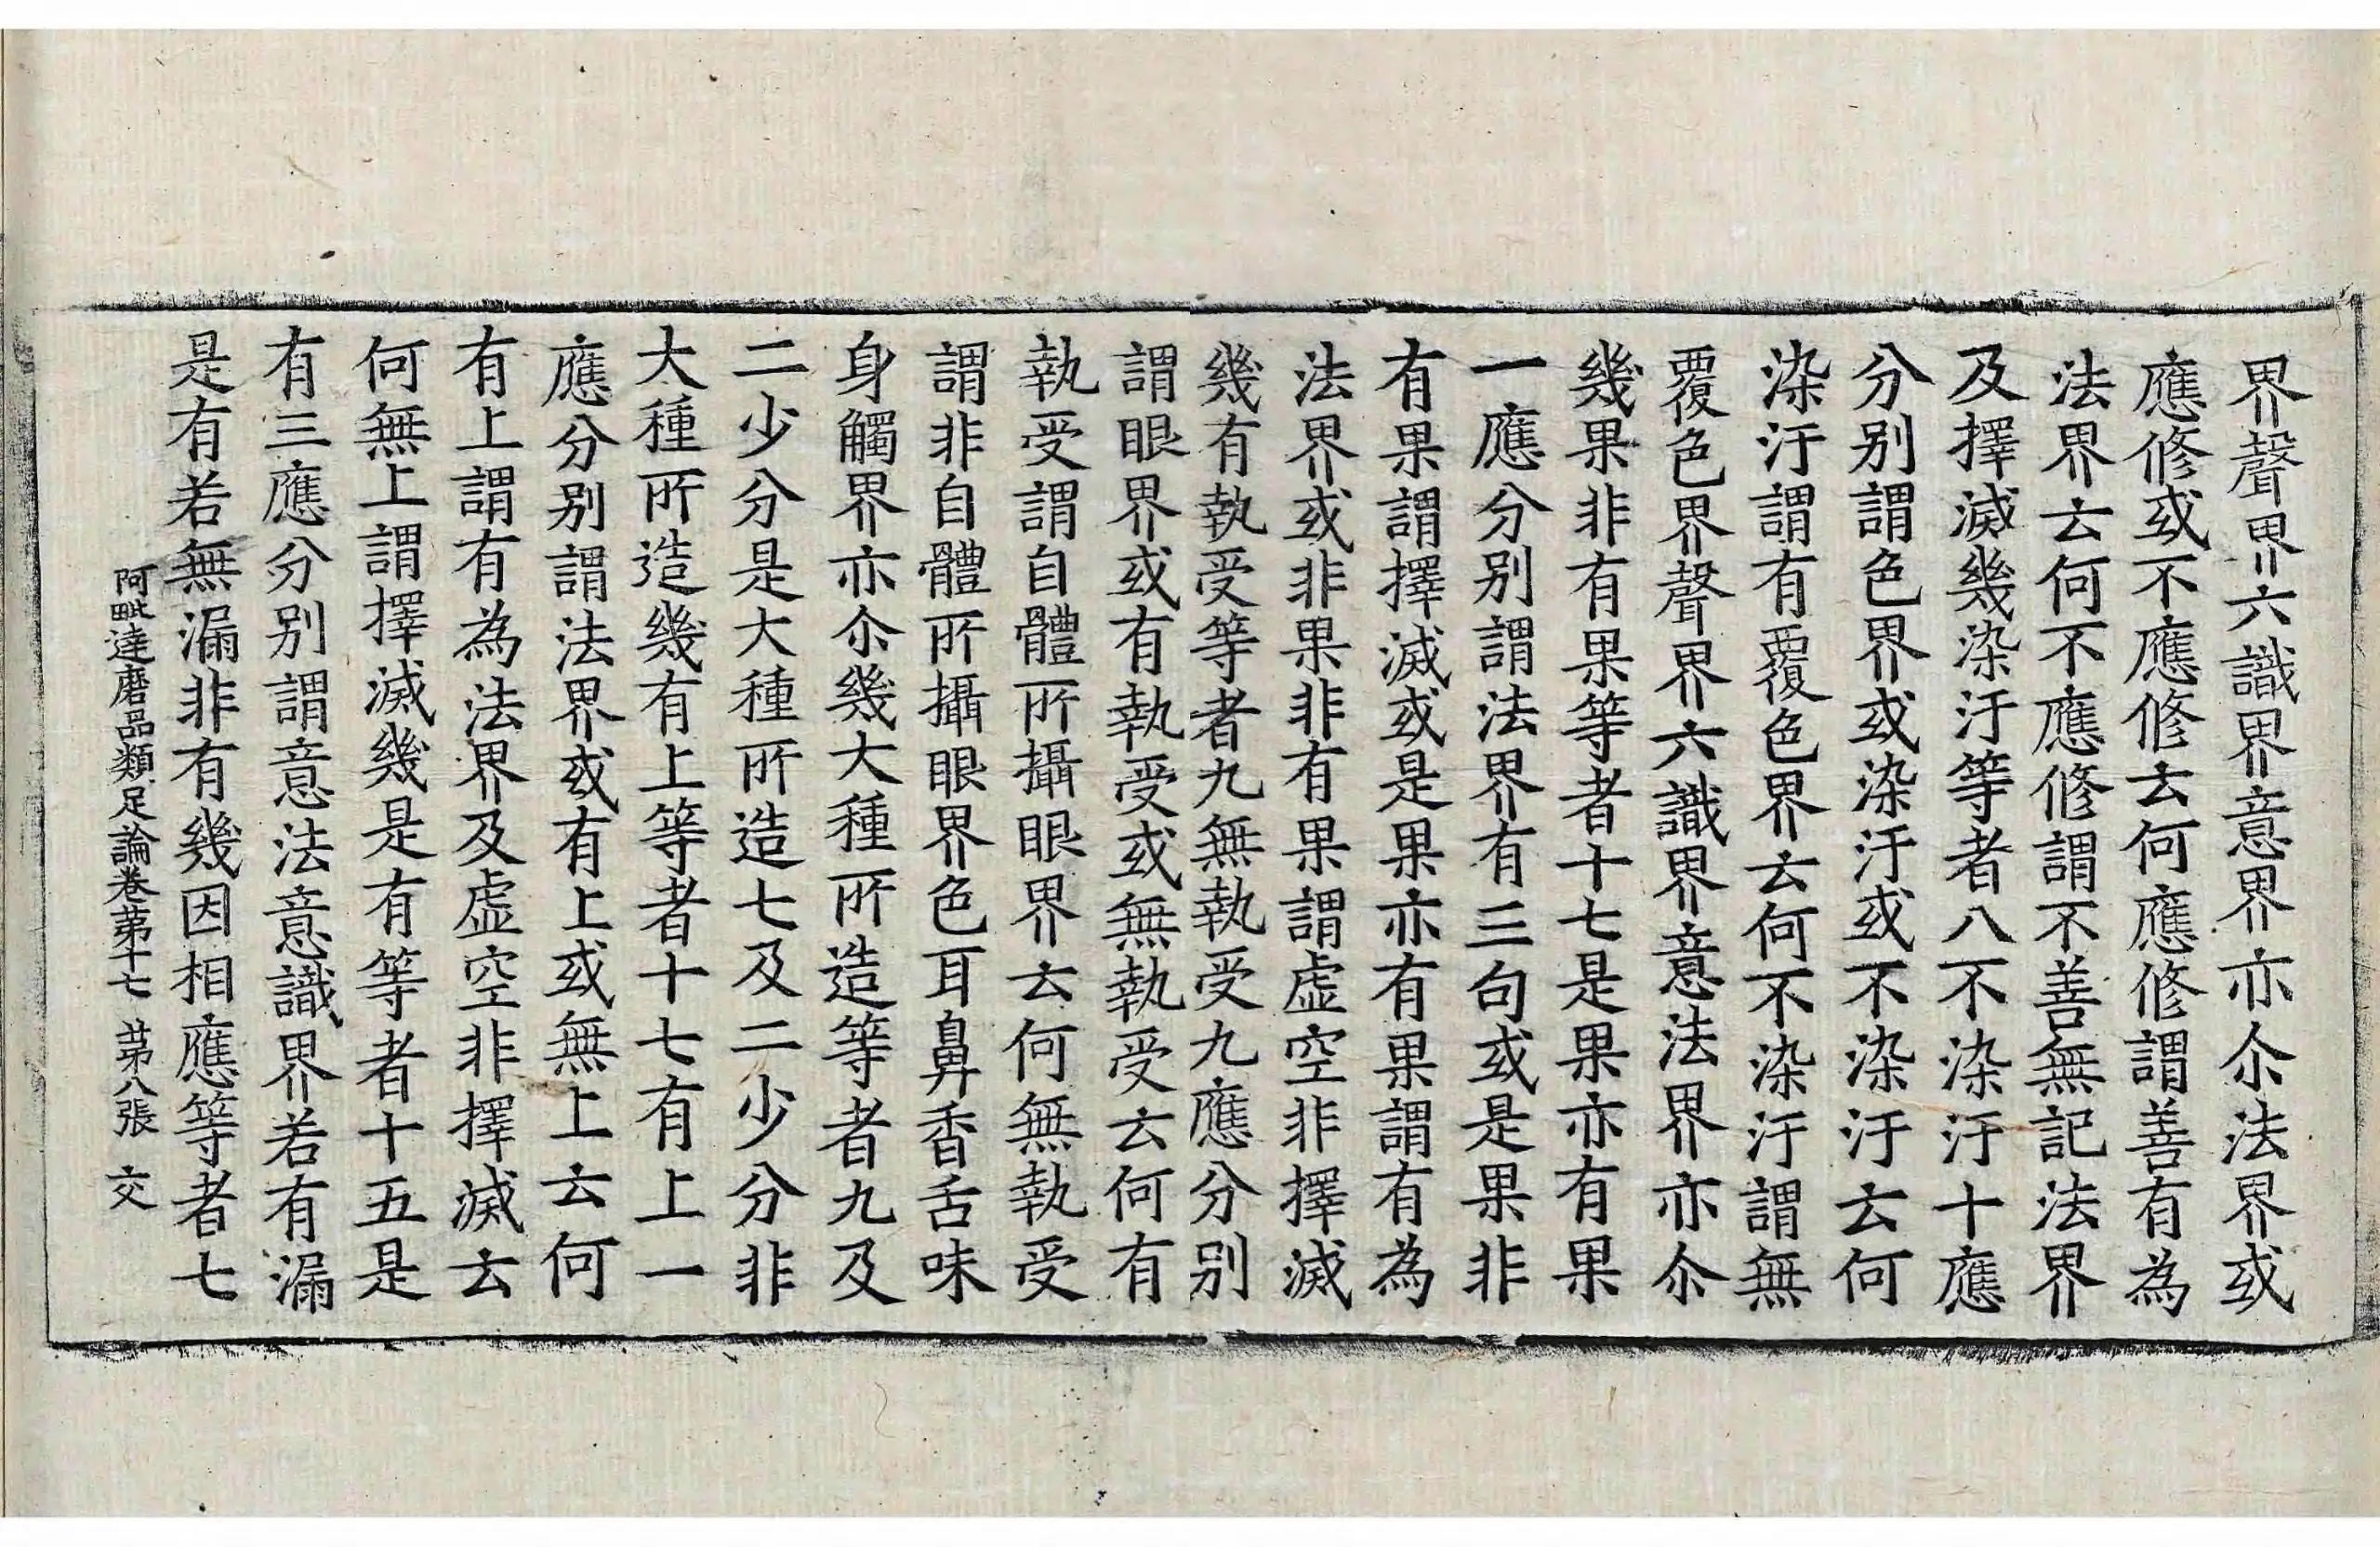 界聲界六識界意界亦尒法界或
應修或不應修云何應修謂善有為
法界云何不應修謂不善無記法界
及擇滅幾染汙等者八不染汙十應
分别謂色界或染汙或不染汙云何
染汙謂有覆色界云何不染汙謂無
覆色界聲界六識界意法界亦尒
幾果非有果等者十七是果亦有果
一應分别謂法界有三句或是果非
有果謂擇滅或是果亦有果謂有為
法界或非果非有果謂虛空非擇滅
幾有執受等者九無執受九應分别
謂眼界或有執受或無執受云何有
執受謂自體所攝眼界云何無執受
謂非自體所攝眼界色耳鼻香舌味
身觸界亦尒幾大種所造等者九及
二少分是大種所造七及二少分非
大種所造幾有上等者十七有上一
應分别謂法界或有上或無上云何
有上謂有為法界及虛空非擇滅云
何無上謂擇滅幾是有等者十五是
有三應分别謂意法意識界若有漏
是有若無漏非有幾因相應等者七
阿毗達磨品類足論卷苐十七 廿苐八張 交